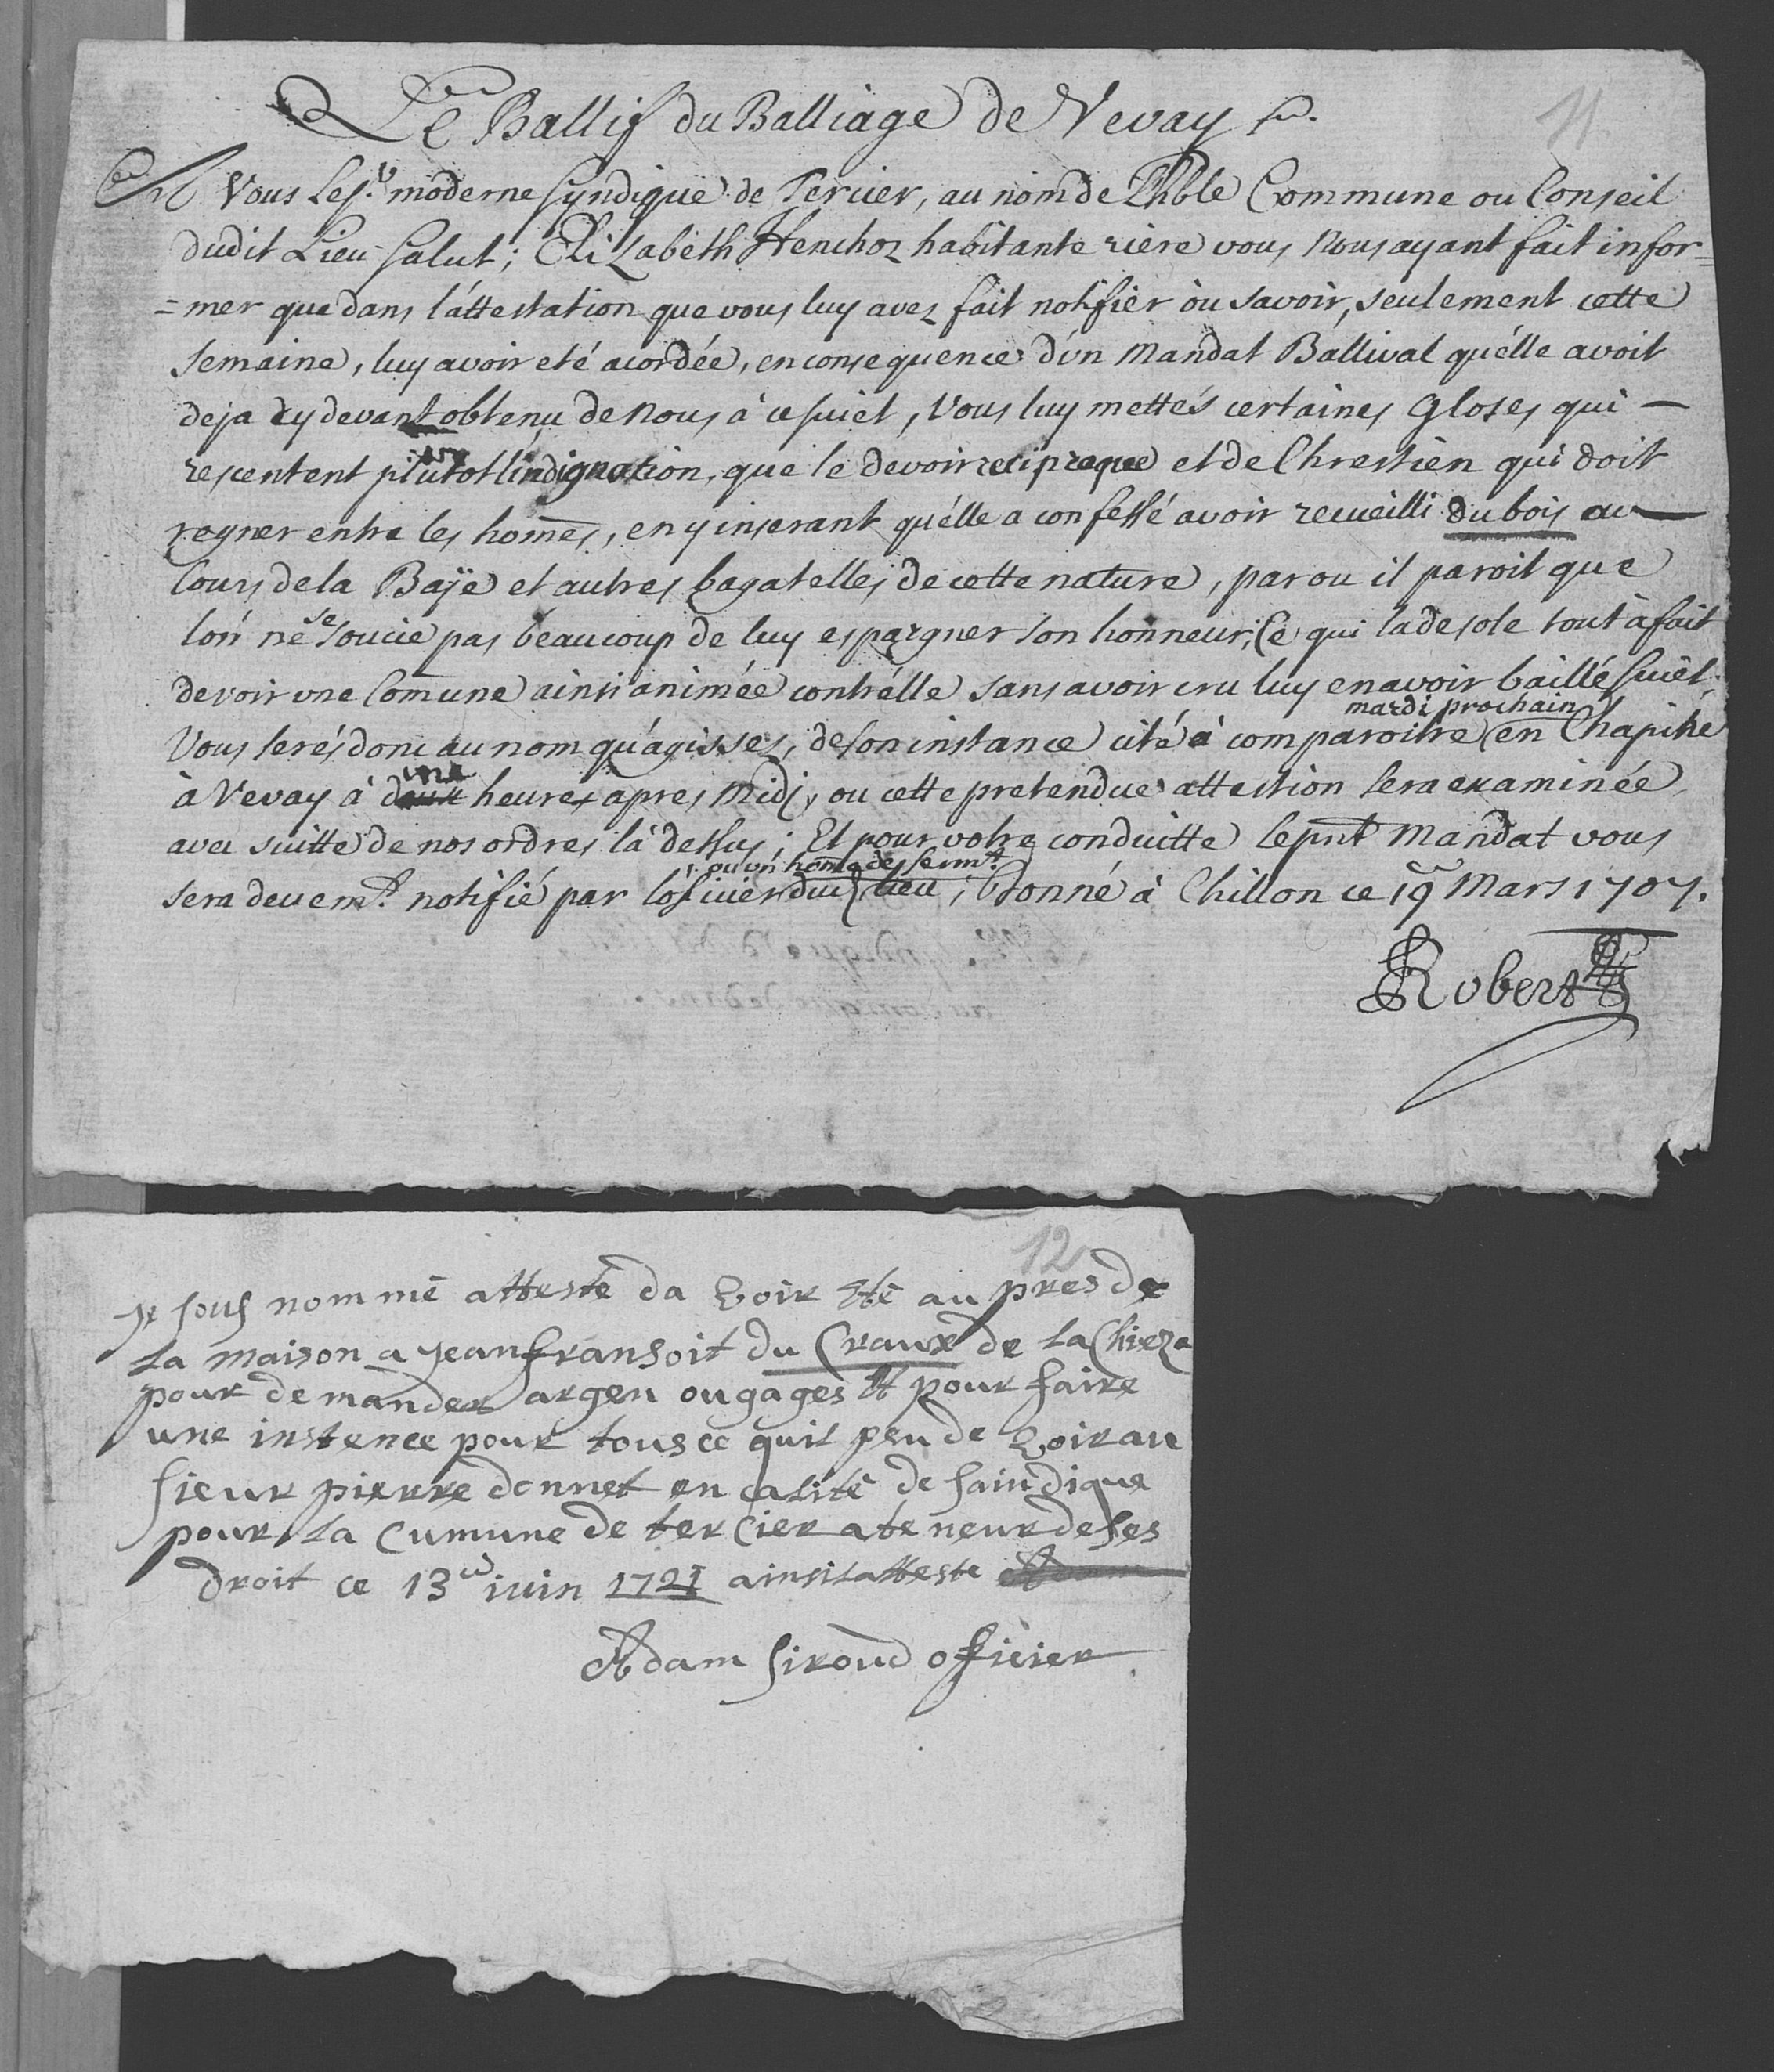 11
Le Ballif du Balliage de Vevay
A Vous Les.r moderne Syndique de Tercier, au nom de L'hble Commune ou Conseil
dudit Lieu Salut; Elizabeth Henchoz habitante rière vous nous ayant fait infor=
=mer que dans l'attestation que vous luy avez fait notifier ou savoir, seulement cette
semaine, luy avoir eté acordée, en consequence d'vn Mandat Ballival qu'elle avoit
deja cy devant obtenu de nous à ce suiet, Vous luy mettés certaines Gloses qui —
rescentent plutot lindignation, que le devoir reciproque et de Chrestien qui doit
regner entre les homes, en y inserant qu'elle a confessé avoir recueilli du bois au
Cours de la Baÿe et autres bagatelles de cette nature, par ou il paroit que
lon ne se soucie pas beaucoup de luy espargner son honneur; Ce qui la desole tout à fait
de voir vne Comune ainsi animée contr'elle sans avoir cru luy en avoir baillé suiet.
mardi prochain
Vous serés donc au nom qu'agissez, de son instance cité à comparoitre en Chapitre
à Vevay à une heure apres Midi, ou cette pretendue attestion sera examinée
avec suitte de nos ordres là dessus; Et pour votre conduitte le pnt Mandat vous
ou vn home de serm.t
sera deuem.t notifié par loficier dud lieu; Donné à Chillon ce 19 Mars 1707.
Robert
12
Je sous nommé atteste da voir eté au pres de
la maison a Jean fransoit du Craux de la Chieza
pour demander argen ou gages et pour faire
une instence pour tous ce quil peu de voir au
sieur pierre donnet en calité de saindique
pour la Cumune de tercier a te neur de ses
droit ce 13 iuin 1721 ainsi latteste
Adam siroud officier